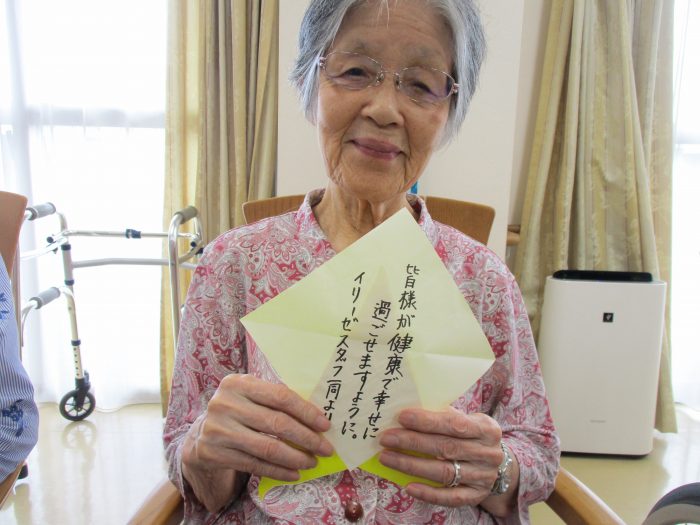 皆様が健康で幸せに
過ごせますように。
イリーゼスタッフ一同より